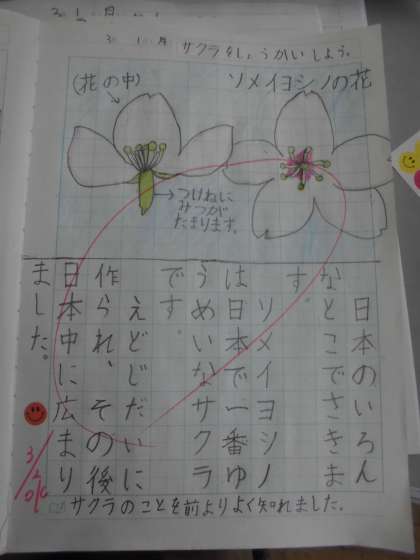 サクラをしょうかいしよう。
(花の中)
ソメイヨシノの花
つけねに
みつが
たまります。
日本のいろん
なところでさきま
す。
ソメイヨシノ
は日本で一番ゆ
うめいなサクラ
です。
えどじだいに
作られ、その後
日本中に広まり
ました。
サクラのことを前よりよく知れました。